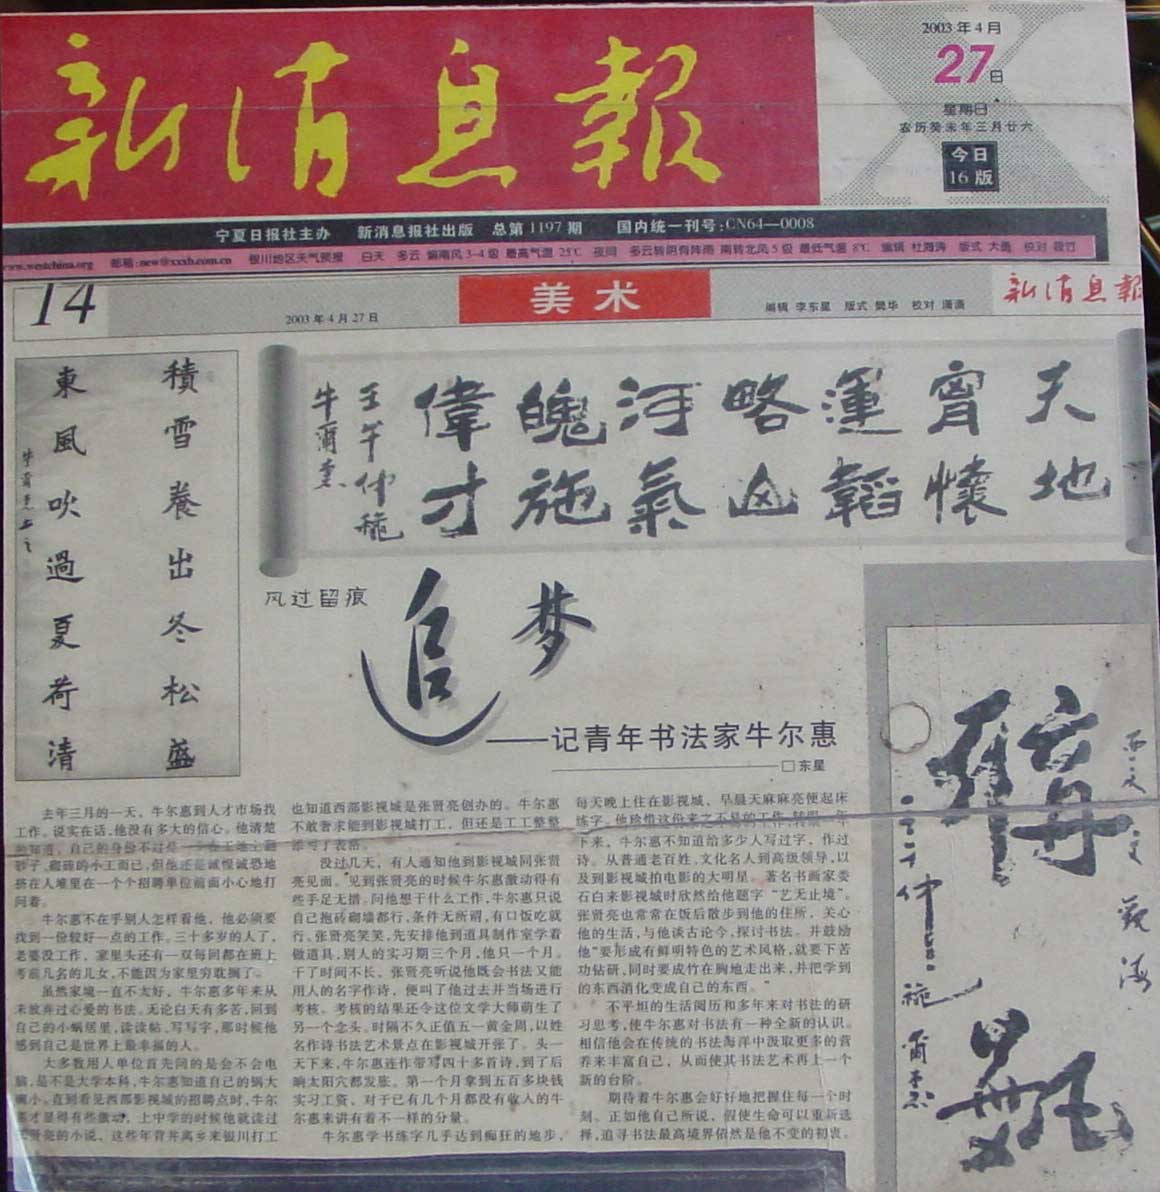 新消息報
2003年4月
27日
星期日
农历癸未年三月廿六
今日
16版
宁夏日报社主办 新消息报社出版 总第1197期 国内统一刊号:CN64—0008
www.westchina.org 邮箱:new@xxxb.com.cn 银川地区天气预报 白天 多云 偏南风3-4级 最高气温 25℃ 夜间 多云转阴有阵雨 南转北风5级 最低气温 8℃ 编辑 杜海涛 版式 大勇 校对
14
2003年4月27日
美术
编辑 李东星 版式 樊华 校对 潇潇
新消息報
積雪養出冬松盛
東風吹過夏荷清
天地
宵懷
運韜
略凶
河氣
魄施
偉才
壬午仲秋
牛爾惠
风过留痕
追梦
——记青年书法家牛尔惠
□东星
去年三月的一天，牛尔惠到人才市场找
工作。说实在话，他没有多大的信心。他清楚
的知道，自己的身份不过是一个在工地上
砂子、搬砖的小工而已，但他还是诚惶诚恐地
挤在人堆里在一个个招聘单位前面小心地打
问着。
牛尔惠不在乎别人怎样看他，他必须要
找到一份较好一点的工作。三十多岁的人了，
老婆没工作，家里头还有一双每回都在班上
考前几名的儿女，不能因为家里穷耽搁了。
虽然家境一直不太好，牛尔惠多年来从
未放弃过心爱的书法。无论白天有多苦，回到
自己的小蜗居里，读读帖、写写字，那时候他
感到自己是世界上最幸福的人。
大多数用人单位首先问的是会不会电
脑，是不是大学本科，牛尔惠知道自己的祸大
碗小。直到看见西部影视城的招聘点时，牛尔
惠才显得有些激动，上中学的时候他就读过
张贤亮的小说，这些年背井离乡来银川打工
也知道西部影视城是张贤亮创办的。牛尔惠
不敢奢求能到影视城打工，但还是工工整整
添写了表格。
没过几天，有人通知他到影视城同张贤
亮见面。见到张贤亮的时候牛尔惠激动得有
些手足无措。问他想干什么工作，牛尔惠只说
自己抱砖砌墙都行，条件无所谓，有口饭吃就
行。张贤亮笑笑，先安排他到道具制作室学着
做道具，别人的实习期三个月，他只一个月。
干了时间不长，张贤亮听说他既会书法又能
用人的名字作诗，便叫了他过去并当场进行
考核。考核的结果还令这位文学大师萌生了
另一个念头。时隔不久正值五一黄金周，以姓
名作诗书法艺术景点在影视城开张了。头一
天下来，牛尔惠连作带写四十多首诗，到了后
晌太阳穴都发胀。第一个月拿到五百多块钱
实习工资，对于已有几个月都没有收入的牛
尔惠来讲有着不一样的分量。
牛尔惠学书练字几乎达到痴狂的地步，
每天晚上住在影视城，早晨天麻麻亮便起床
练字。他珍惜这份来之不易的工作，转眼一年
下来，牛尔惠不知道给多少人写过字，作过
诗。从普通老百姓，文化名人到高级领导，以
及到影视城拍电影的大明星。著名书画家娄
石白来影视城时欣然给他题字“艺无止境”。
张贤亮也常常在饭后散步到他的住所，关心
他的生活，与他谈古论今，探讨书法。并鼓励
他“要形成有鲜明特色的艺术风格，就要下苦
功钻研，同时要成竹在胸地走出来，并把学到
的东西消化变成自己的东西。”
不平坦的生活阅历和多年来对书法的研
习思考，使牛尔惠对书法有一种全新的认识。
相信他会在传统的书法海洋中汲取更多的营
养来丰富自己，从而使其书法艺术再上一个
新的台阶。
期待着牛尔惠会好好地把握住每一个时
刻。正如他自己所说，假使生命可以重新选
择，追寻书法最高境界依然是他不变的初衷。